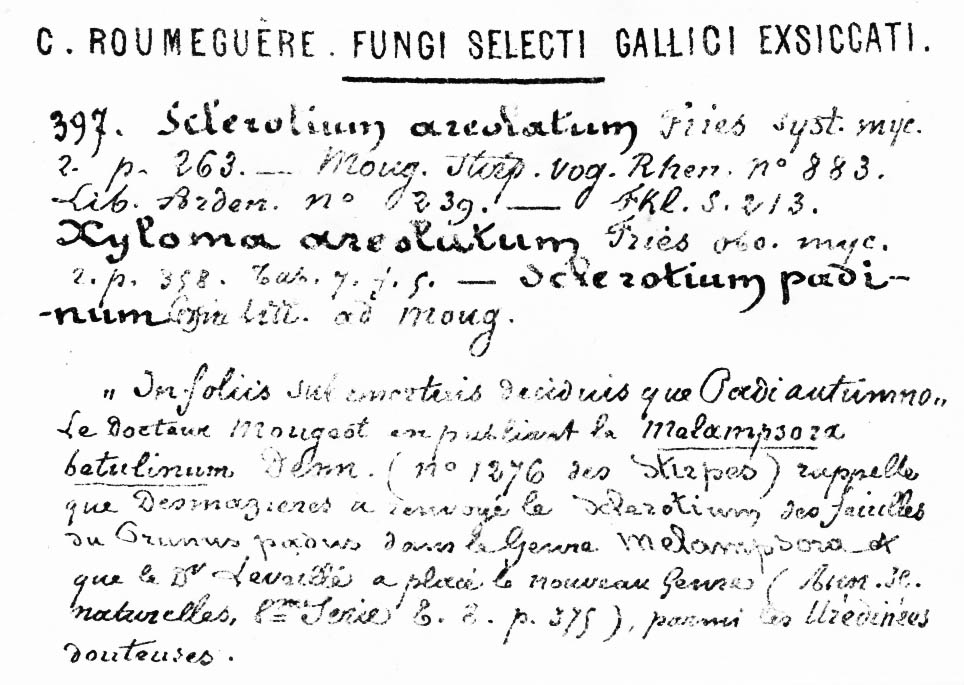 C. ROUMEGUÈRE. FUNGI SELECTI GALLICI EXSICCATI.
397. Sclerotium areolatum Fries syst. myc.
2. p. 263. — Moug. Stirp. vog. Rhen. nº 883.
Lib. Arden. nº 239. — Fkl. S. 213.
Xyloma areolatum Fries obs. myc.
2. p. 358. Tab. 7. f. 5. — Sclerotium padi-
-num litt. ad Moug.
„ In foliis deciduis que Padi autumno„
Le Docteur Mougeot en publiant la Melampsora
betulinum Demn. (nº 1276 des Stirpes) rappelle
que Desmazieres a renvoyé le Sclerotium des feuilles
du Prunus padus dans le Genre Melampsora et
que le Dr Leveillé a placé le nouveau Genre (Ann. Sc.
naturelles, Serie t. 2. p. 375), parmi les Urédinées
douteuses.